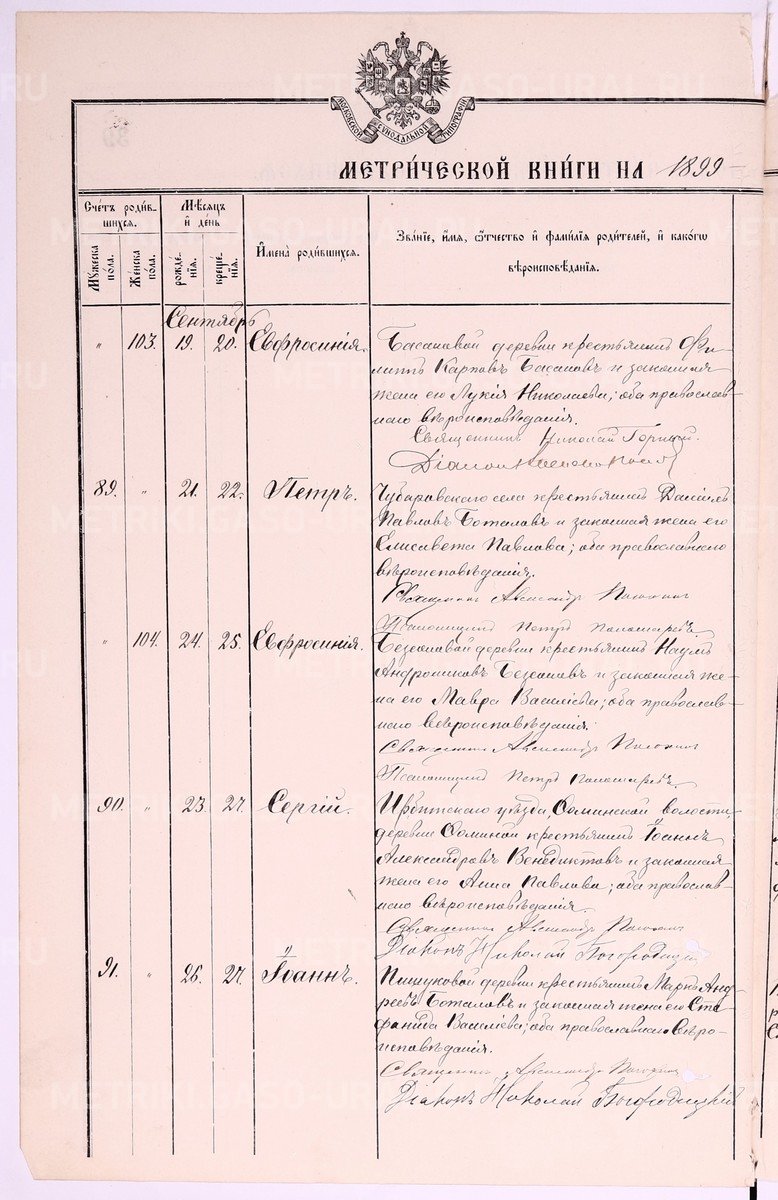 МОСКОВСКОЙ СѴНОДАЛЬНОЙ ТИПОГРАФІИ
МЕТРИ́ЧЕСКОЙ КНИ́ГИ НА 1899
Сче́тъ роди́в-
шихся.
Мѣ́сяцъ
и҆ де́нь
Мꙋжеска
пола.
Же́нска
пола.
рожде-
нїѧ.
креще-
нїѧ.
И҆мена̀ роди́вшихся.
Зва́нїе, и҆́мѧ, ѻ҆́тчество и҆ фами́лїѧ роди́телей, и҆ како́гѡ
вѣроисповѣ́данїѧ.
Сентябрь
" 103. 19. 20. Евфросинія.
Басановой деревни крестьянинъ Фи-
липпъ Карповъ Басановъ и законная
жена его Лукія Николаева; оба православ-
наго вѣроисповѣданія.
Священникъ Николай Горный.
Діаконъ
89. " 21. 22. Петръ.
Чубаровскаго села крестьянинъ Даніилъ
Павловъ Боталовъ и законная жена его
Елисавета Павлова; оба православнаго
вѣроисповѣданія.
Священникъ Александръ
Псаломщикъ Петръ
" 104. 24. 25. Евфросинія.
деревни крестьянинъ Наумъ
Андрониковъ и законная же-
на его Мавра Василіева; оба православ-
наго вѣроисповѣданія.
Священникъ Александръ
Псаломщикъ Петръ
90. " 23. 27. Сергій.
Ирбитскаго уѣзда, Ѳоминской волости,
деревни Ѳоминой крестьянинъ Іоаннъ
Александровъ Венедиктовъ и законная
жена его Анна Павлова; оба православ-
наго вѣроисповѣданія.
Священникъ Александръ
Діаконъ Николай Богородицкій
91. " 26. 27. Іоаннъ.
Пишуковой деревни крестьянинъ Маркъ Анд-
реевъ Боталовъ и законная жена его Сте-
фанида Василіева; оба православнаго вѣро-
исповѣданія.
Священникъ Александръ
Діаконъ Николай Богородицкій